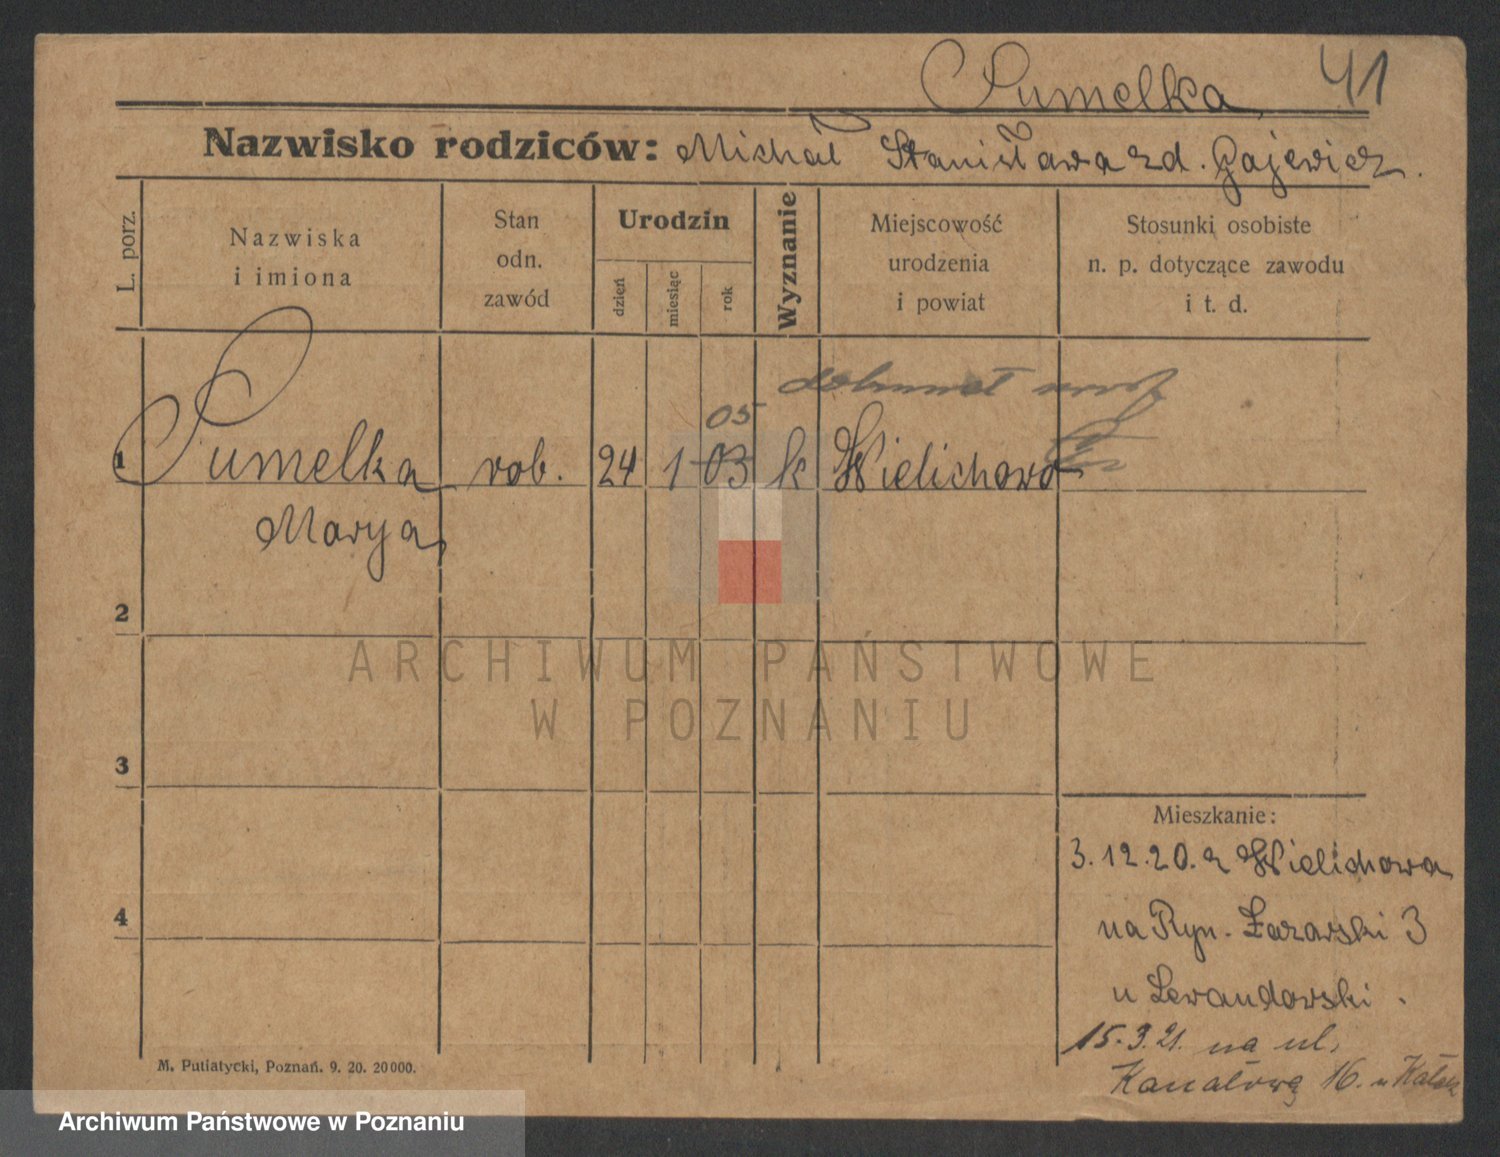 Pumelka 41
Nazwisko rodziców: Michał Stanisława zd. Gajewicz.
L. porz.
Nazwiska
i imiona
Stan
odn.
zawód
Urodzin
dzień
miesiąc
rok
Wyznanie
Miejscowość
urodzenia
i powiat
Stosunki osobiste
n. p. dotyczące zawodu
i t. d.
05
1 Pumelka rob. 24 1 03 k Wielichowo
Marya
2
3
4
ARCHIWUM PAŃSTWOWE
W POZNANIU
Mieszkanie:
3.12.20. z Wielichowa
na Ryn. Łazarski 3
u Lewandowski.
15.3.21. na ul.
Kanałową 16. u
M. Putiatycki, Poznań. 9. 20. 20000.
Archiwum Państwowe w Poznaniu